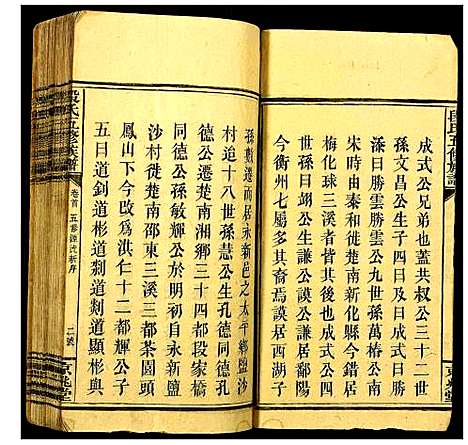 成式公兄弟也蓋共叔公三十二世
孫文昌公生子四曰及曰成式曰勝
渙曰勝雲勝雲公九世孫萬樁公南
宋時由秦和徙楚南新化縣今錯居
梅化球三溪者皆其後可成公四
世孫曰翊公生謙公謨公謙居鄱陽
今衡州七屬多其裔焉謨居西湖子
孫數遷而居永新邑之太平鄉鹽沙
村迨十八世孫慧公生孔德同德孔
德公遷楚南湘鄉三十四都段家橋
同德公孫敏輝公於明初自永新鹽
沙村徙楚南邵東三溪三都茶園頭
鳳山下今改為洪仁十二都輝公子
五曰道釗道彬道剡道顯彬與
段氏五修族譜
卷首
五修源流新序
二號
京兆堂